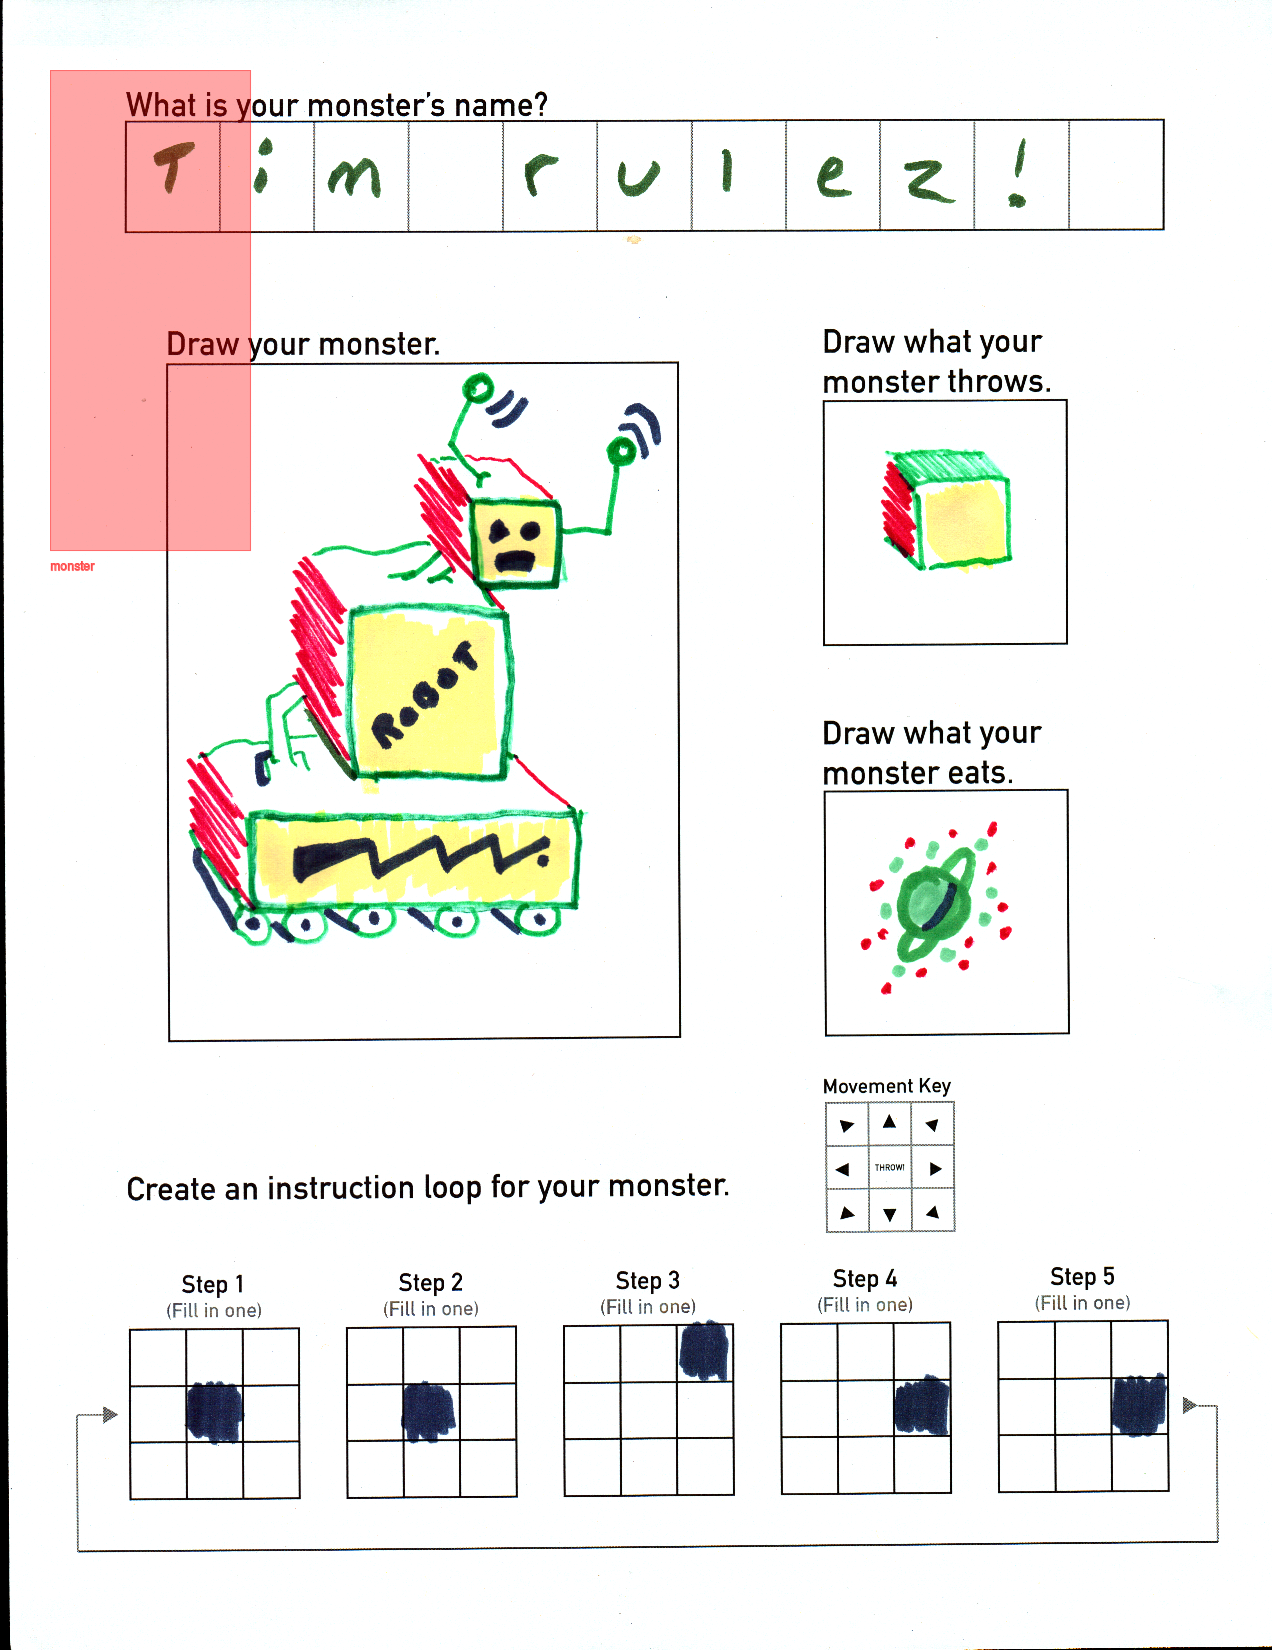 What is your monster's name?
Tim rulez!
Draw your monster.
ROBOT
Draw what your
monster throws.
Draw what your
monster eats.
monster
Movement Key
THROW!
Create an instruction loop for your monster.
Step 1
(Fill in one)
Step 2
(Fill in one)
Step 3
(Fill in one)
Step 4
(Fill in one)
Step 5
(Fill in one)